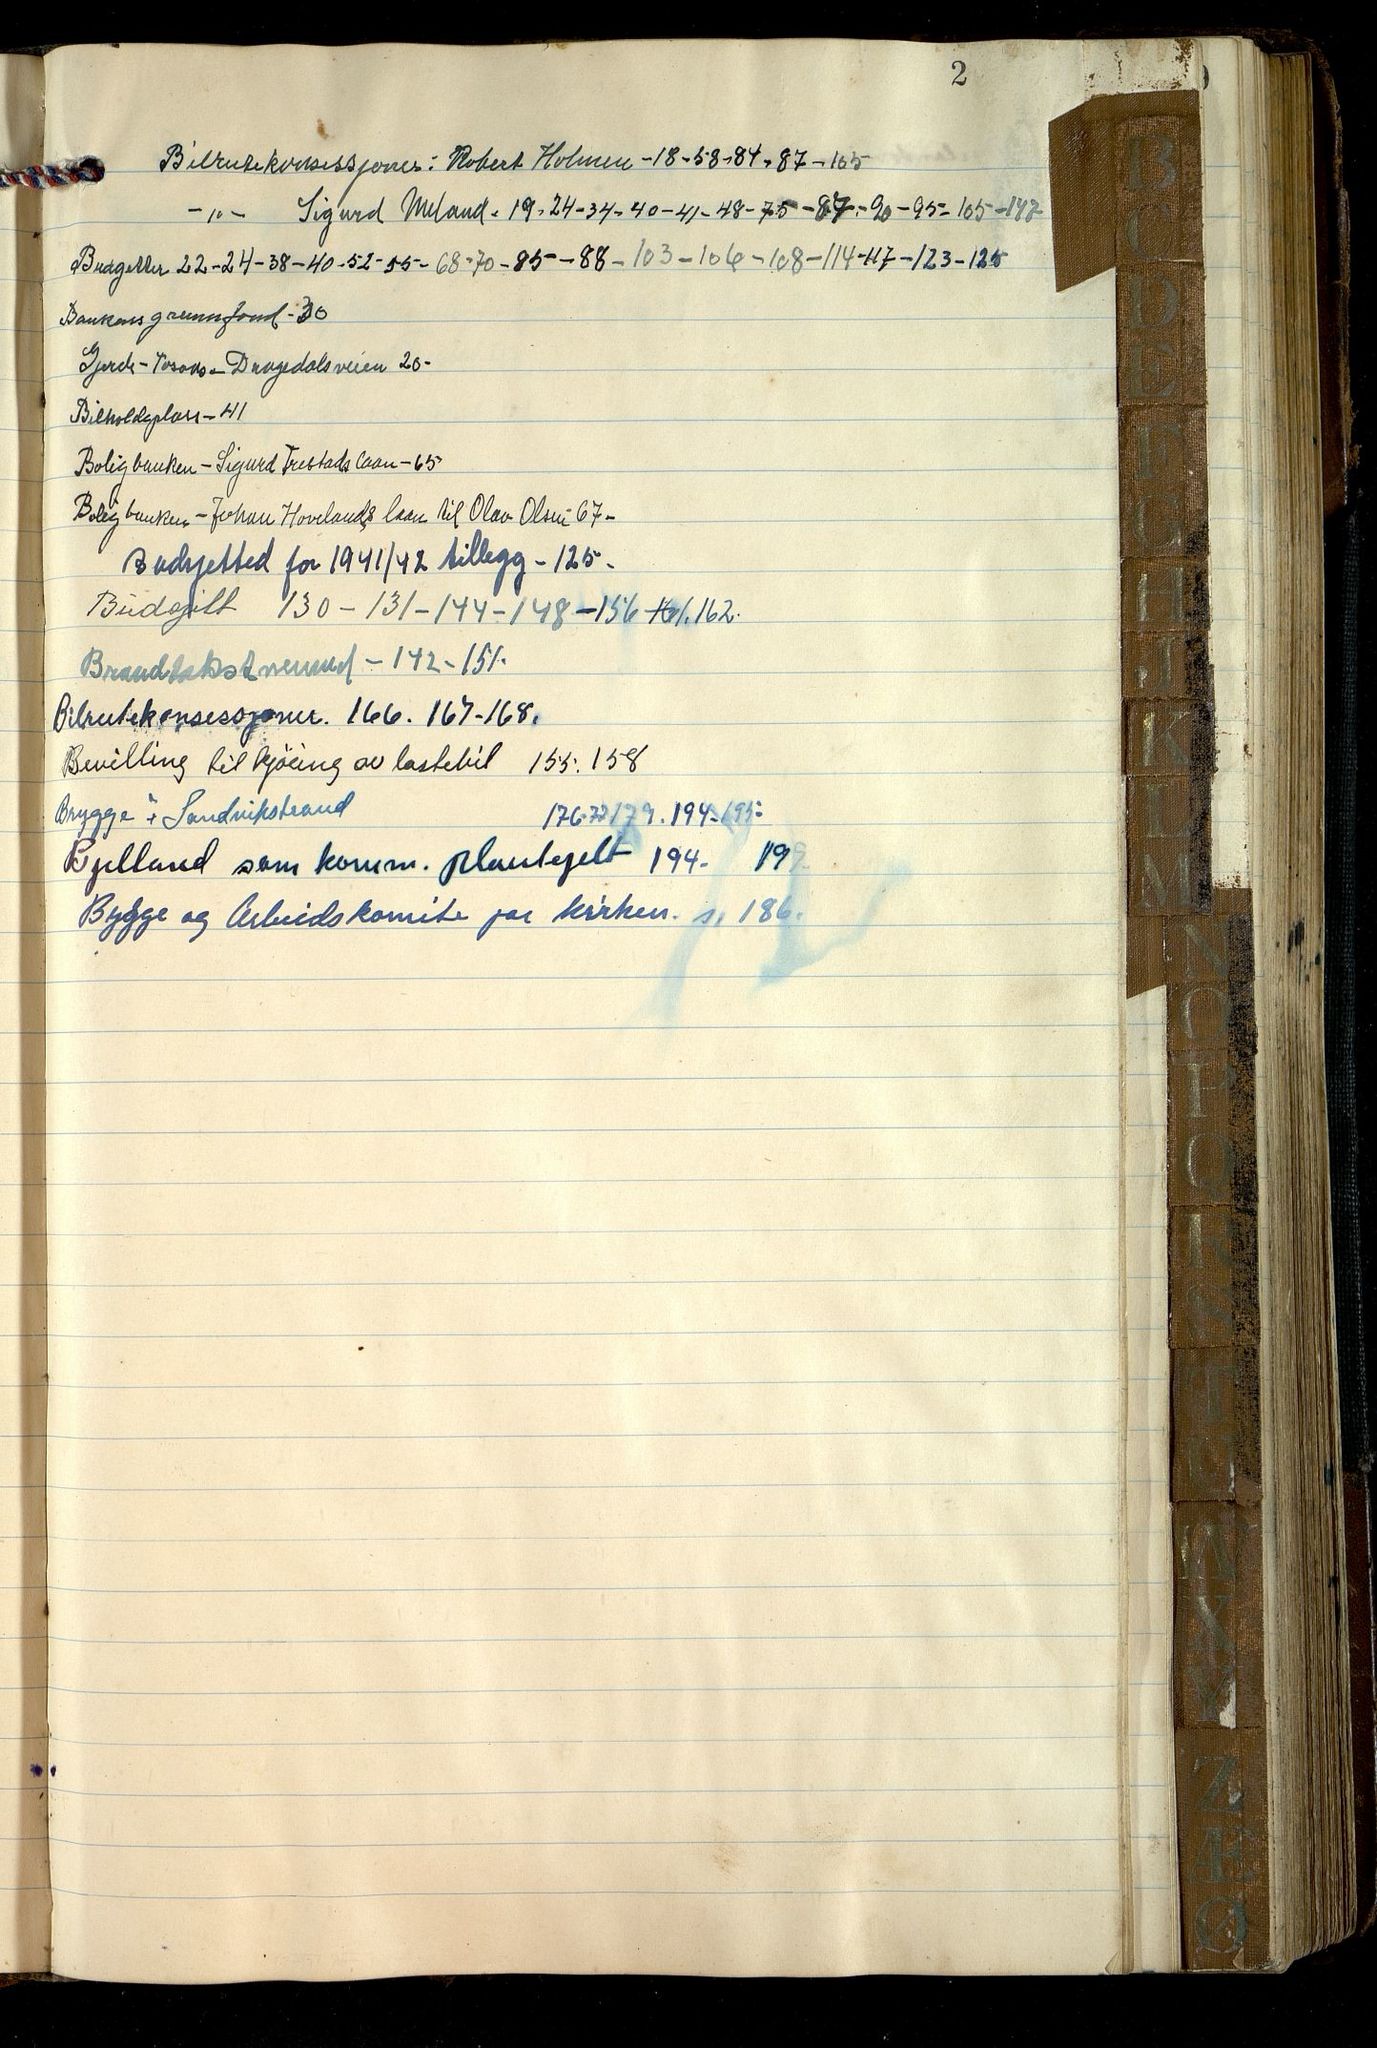 2
Bilrutekonsessjoner: Robert Holmen - 18 - 58 - 84 - 87 - 105
- " - Sigurd Meland - 19 - 24 - 34 - 40 - 41 - 48 - 75 - 87 - 90 - 95 - 105 - 147
Budgetter 22 - 24 - 38 - 40 - 52 - 55 - 68 - 70 - 85 - 88 - 103 - 106 - 108 - 114 - 117 - 123 - 125
Bankens grunnfond - 30
Gjerde - - Dragedalsveien 20 -
Bilholdeplass - 41
Boligbanken - Sigurd Trestads laan - 65
Boligbanken - Johan Hovelands laan til Olav Olsen 67 -
Budsjetted for 1941/42 tillegg - 125 -
Budgett 130 - 131 - 144 - 148 - 156 - 161. 162.
Brandtakstnemnd - 142 - 151.
Bilrutekonsessjoner. 166. 167 - 168.
Bevilling til kjöring av lastebil 155. 158
Brygge i Sandvikstrand 176-77 179. 194 - 195 -
Bjelland som komm. plantefelt 194 - 199
Bygge og Arbeidskomite for kirken. s. 186.
B
C
D
E
F
G
H
I
K
L
M
N
O
P
Q
R
S
T
U
W
X
Y
Z
Æ
Ø